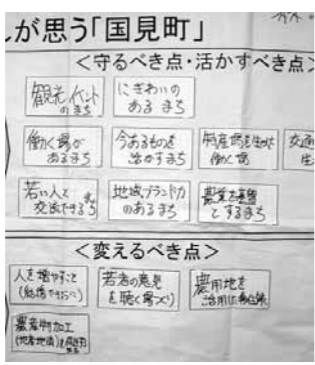 が思う「国見町」
＜守るべき点・活かすべき点＞
観光イベント
のまち
にぎわいの
あるまち
働く場が
あるまち
今あるものを
活かすまち
働く場
交通
若い人と
交流できるまち
地域ブランド力
のあるまち
農業を基盤
とするまち
＜変えるべき点＞
人を増やすこと
若者の意見
を聴く場づくり
農用地を
農産物加工